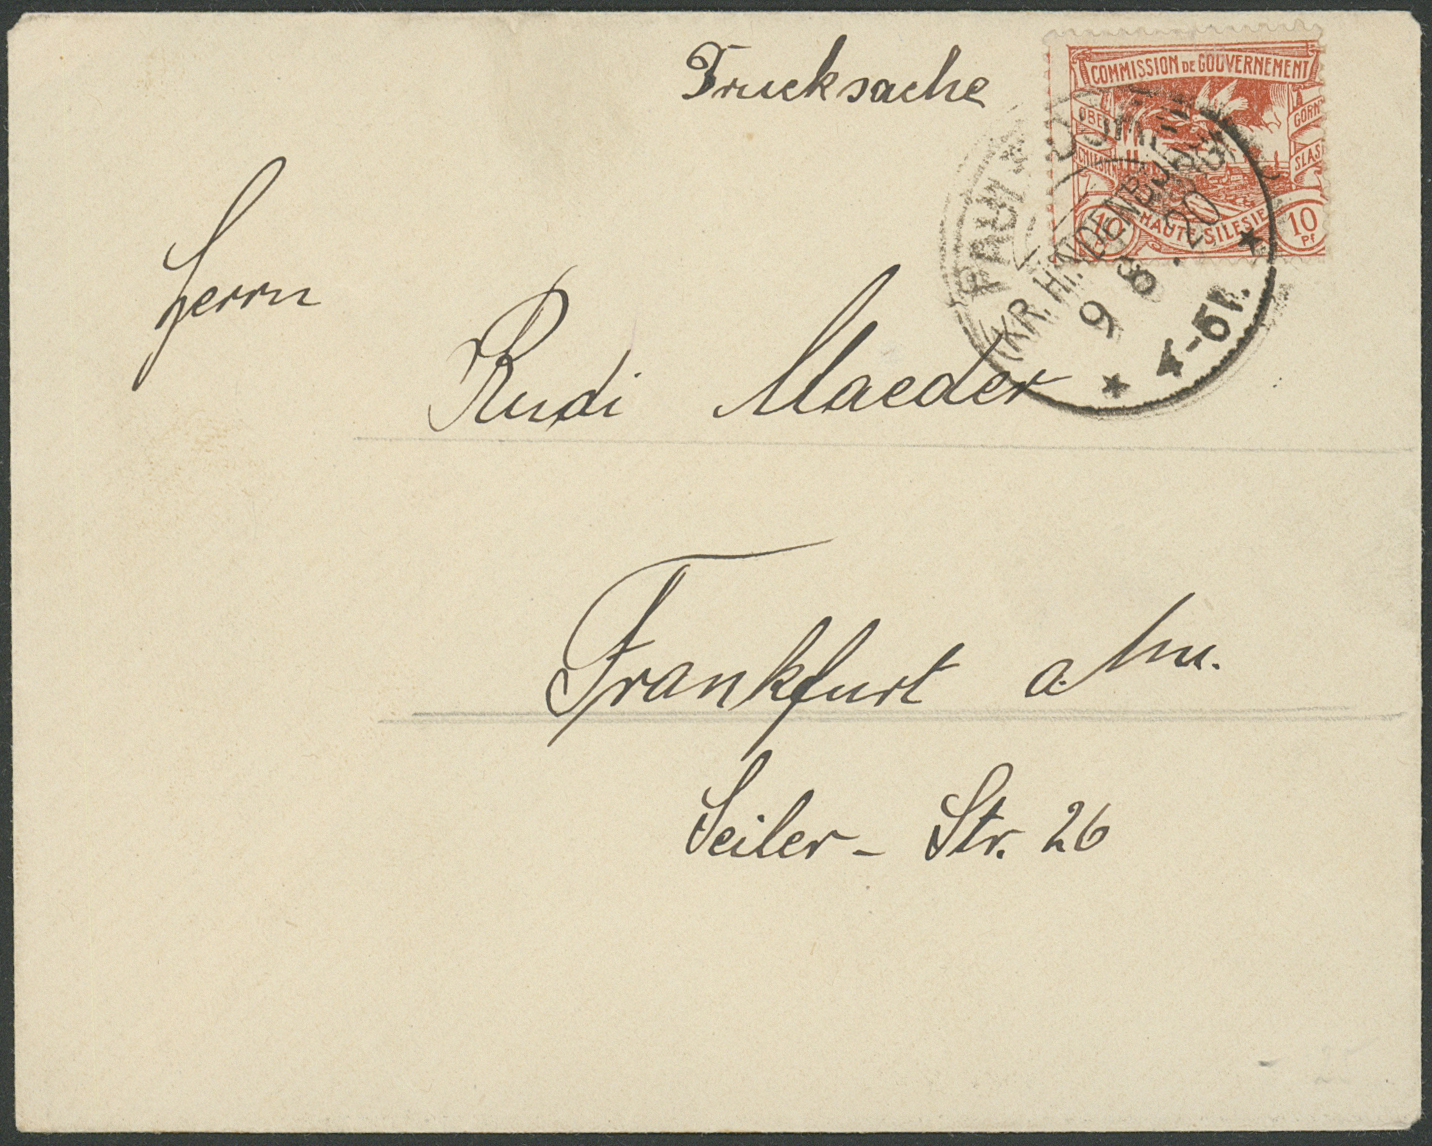 Drucksache
COMMISSION DE GOUVERNEMENT
OBER
GORN
SLAS
10
HAUTE SILESIE
10
Pf
PAUL DORF
(KR. HINDENBURG
9 8. 20
4-5N.
Herrn
Rudi Maeder
Frankfurt a. M.
Seiler-Str. 26